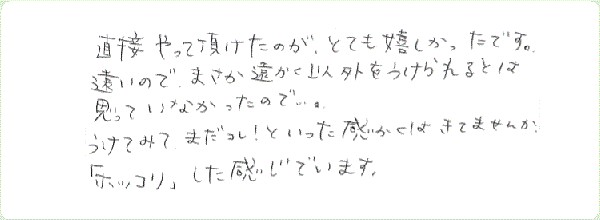 直接やって頂けたのが、とても嬉しかったです。
遠いので、まさか遠かく以外をうけられるとは
思っていなかったので…。
うけてみて、まだコレ！といった感かくはきてませんが、
「ホッコリ」した感じでいます。